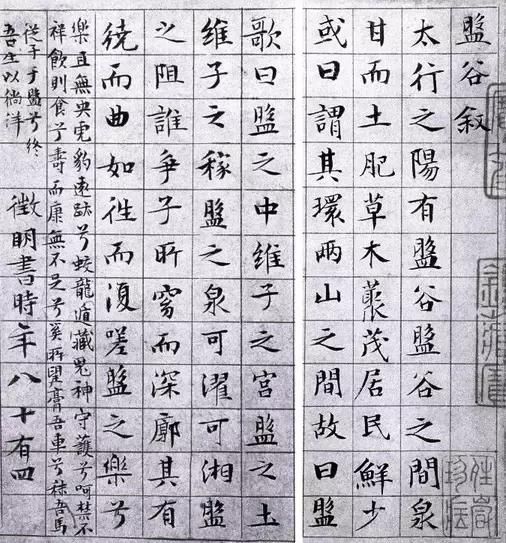 盤谷叙
太行之陽有盤谷盤谷之間泉
甘而土肥草木藂茂居民鮮少
或曰謂其環兩山之間故曰盤
歌曰盤之中維子之宮盤之土
維子之稼盤之泉可濯可湘盤
之阻誰爭子所窈而深廓其有
繞而曲如往而復嗟盤之樂兮
樂且無央虎豹遠跡兮蛟龍遁藏鬼神守護兮呵禁不
祥飲則食兮壽而康無不足兮奚所望膏吾車兮秣吾馬
從子于盤兮終
吾生以徜洋
徵明書時年八十有四